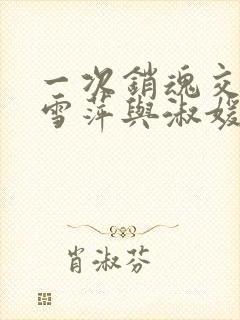 一次銷魂交
雪萍與淑媛
肖淑芬